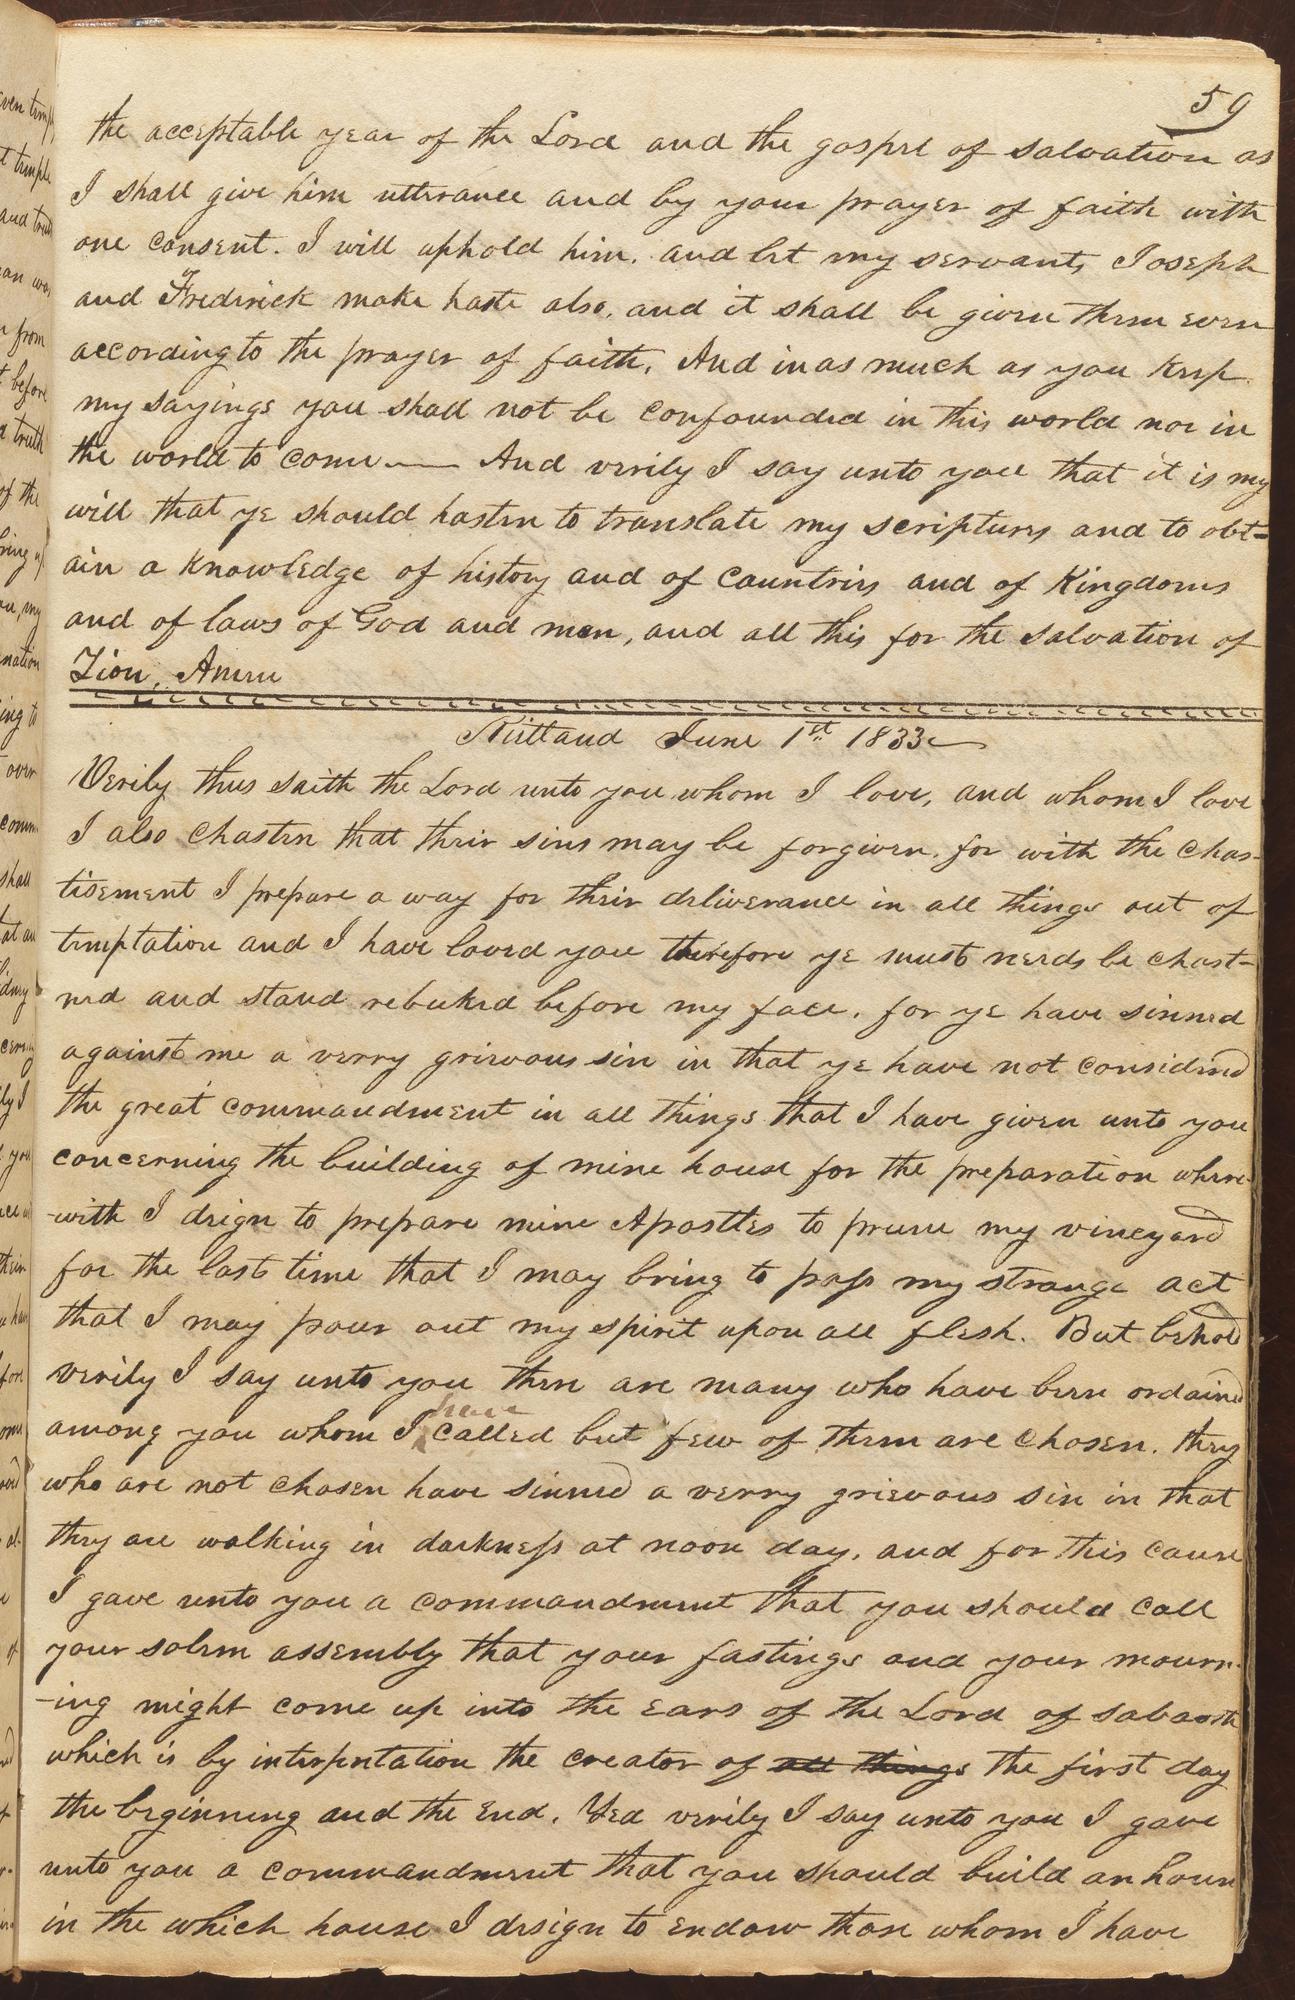 59
the acceptable year of the Lord and the gospel of salvation as
I shall give him utterance and by your prayer of faith with
one consent. I will uphold him. and let my servants Joseph
and Frederick make haste also, and it shall be given them even
according to the prayer of faith, And in as much as you keep
my sayings you shall not be confounded in this world nor in
the world to come—— And verily I say unto you that it is my
will that ye should hasten to translate my scriptures and to obt=
ain a knowledge of history and of countries and of Kingdoms
and of laws of God and man, and all this for the salvation of
Zion, Amen
Kirtland June 1st 1833
Verily thus saith the Lord unto you whom I love, and whom I love
I also chasten that their sins may be forgiven. for with the chas-
tisement I prepare a way for their deliverance in all things out of
temptation and I have loved you therefore ye must needs be chast-
ned and stand rebuked before my face. for ye have sinned
against me a verry grievous sin in that ye have not considered
the great commandment in all things that I have given unto you
concerning the building of mine house for the preparation where-
-with I design to prepare mine Apostles to prune my vineyard
for the last time that I may bring to pass my strange act
that I may pour out my spirit upon all flesh. But behold
verily I say unto you there are many who have been ordained
among you whom I have called but few of them are chosen. they
who are not chosen have sinned a verry grievous sin in that
they are walking in darkness at noon day. and for this cause
I gave unto you a commandment that you should call
your solem assembly that your fastings and your mourn-
-ing might come up into the ears of the Lord of sabaoth
which is by interpretation the creator of all things the first day
the beginning and the end. Yea verily I say unto you I gave
unto you a commandment that you should build an house
in the which house I design to endow those whom I have